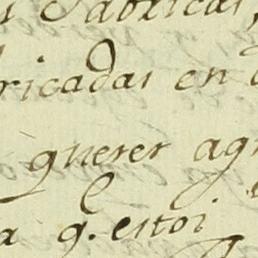 Fabricas,
ricadas en
querer ag
a q.e estoi